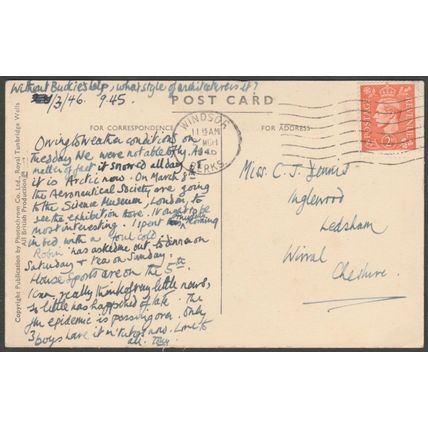 Without Buckie's help, what style of architecture is it?
1/3/46. 9.45.
POST CARD
FOR CORRESPONDENCE
FOR ADDRESS
Copyright Publication by Photochrom Co., Ltd., Royal Tunbridge Wells
All British Production
WINDSOR
11 15 AM
1 MCH
1946
BERKS
POSTAGE
REVENUE
Owing to weather conditions on
Tuesday we were not able to fly. As a
matter of fact it snowed all day
it is Arctic now. On March 8th
the Aeronautical Society are going
to the Science Museum, London, to
see the exhibition there. It ought to be
most interesting. I spent this morning
in bed with a foul cold.
Robin has asked me out to dinner on
Saturday & tea on Sunday.
House Sports are on the 5th.
I can really think of very little news,
so little has happened of late. The
flu epidemic is passing over. Only
3 boys have it in Tutors now. Love to
all. Tony
Miss. C. J. Dennis
Inglewood
Ledsham
Wirral
Cheshire.